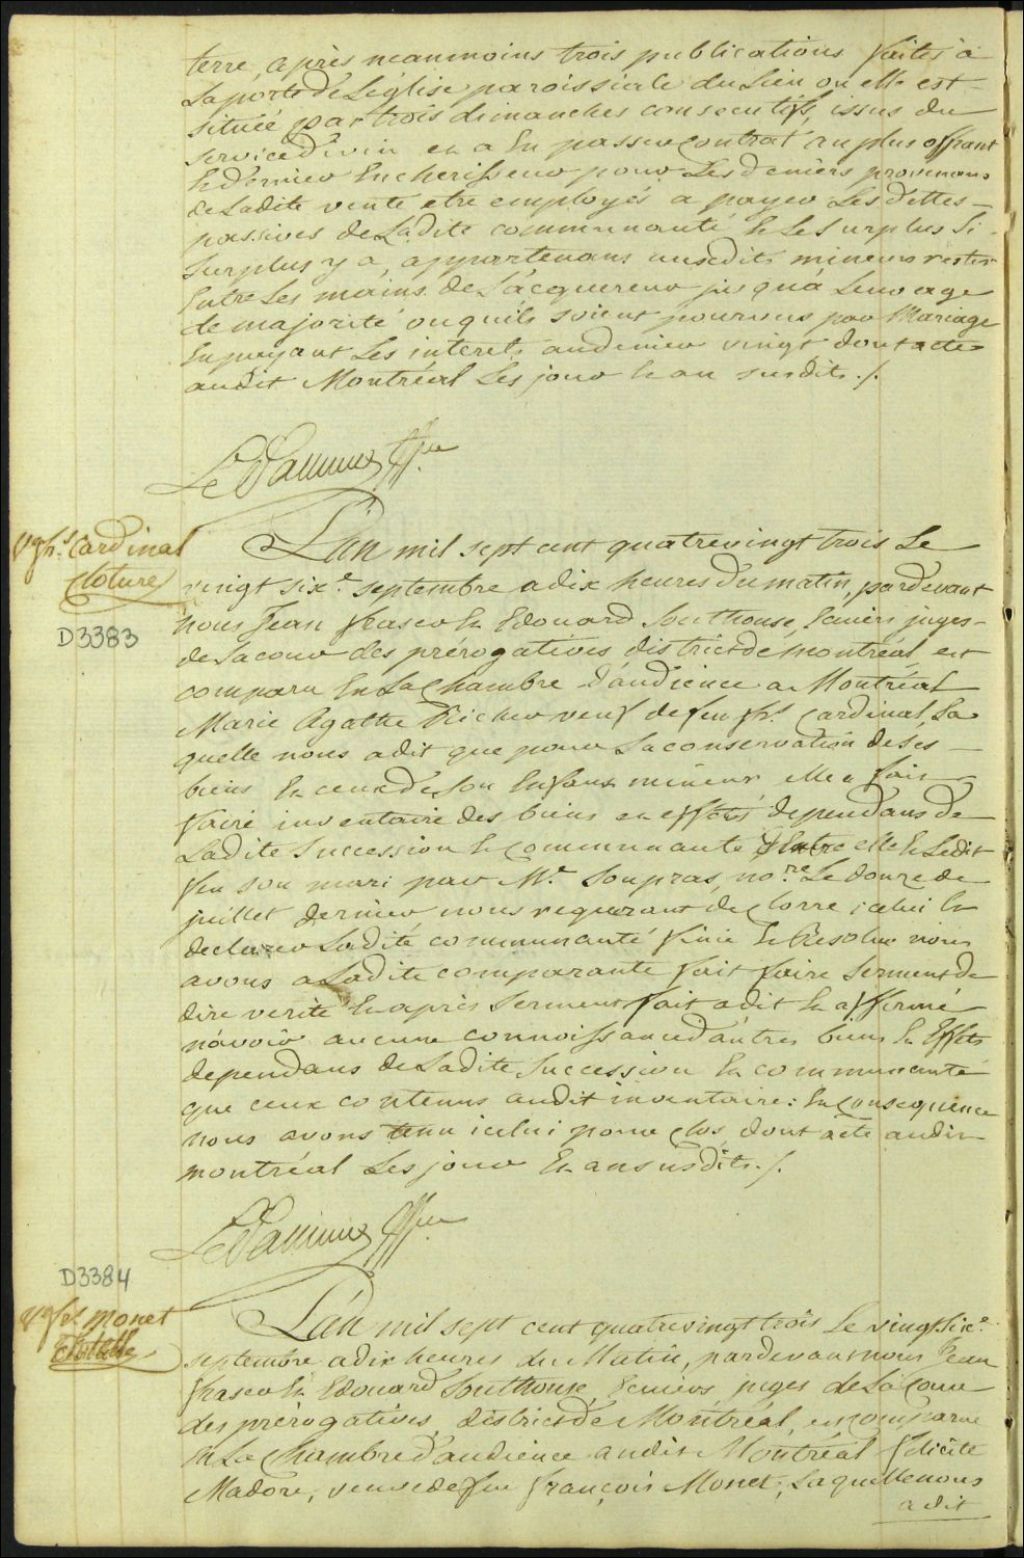 terre, apres neanmoins trois publications faites à
la porte de L'église paroissiale du Lieu ou elle est
située par trois dimanches consecutifs, issue du
service divin et a En passer contrat au plus offrant
& dernier Encherisseur pour Les deniers provenans
de Ladite vente etre employés a payer Les dettes
passives de Ladite communauté & Le Surplus Si
Surplus y a, appartenans auxdits mineurs rester
Entre Les mains de L'acquereur jusqu'a Leur age
de majorité ou qu'ils soient pourvus par Mariage
En payant Les interets au denier vingt dont acte
audit Montréal Les jour & an susdits ./.
Vve frs. Cardinal
Cloture
D3383
L'an mil sept cent quatrevingt trois Le
vingt sixe. septembre a dix heures du matin, pardevant
nous Jean fraser & Edouard Southouse, Ecuiers juges
de La cour des prérogatives district de Montréal est
comparu En La Chambre d'audience a Montréal
Marie Agathe Richer veuf de feu frs. Cardinal, La
quelle nous a dit que pour La conservation de ses
biens & ceux de son Enfans mineur elle a fait
faire inventaire des biens et effets dependans de
Ladite Succession & communauté d'Entre elle & Ledit
feu son mari par Me. Soupras, nore. Le douze de
juillet dernier nous requerant de clorre icelui &
declarer Ladite communauté finie & resolue nous
avons a Ladite comparante fait faire serment de
dire verité & apres serment fait a dit & affirmé
n'avoir aucune connoissance d'autres biens & Effets
dependans de Ladite Succession & communauté
que ceux contenus audit inventaire: En consequence
nous avons tenu icelui pour clos, dont acte audit
montréal Les jour & an susdits ./.
D3384
Vve frs. Monet
Cloture
L'an mil sept cent quatrevingt trois Le vingt sixe.
septembre a dix heures du Matin, pardevant nous Jean
fraser & Edouard Southouse Ecuiers juges de La Cour
des prérogatives, district de Montréal, est comparue
En La Chambre d'audience audit Montréal félicité
Madore, veuve de feu françois Monet, Laquelle nous
a dit